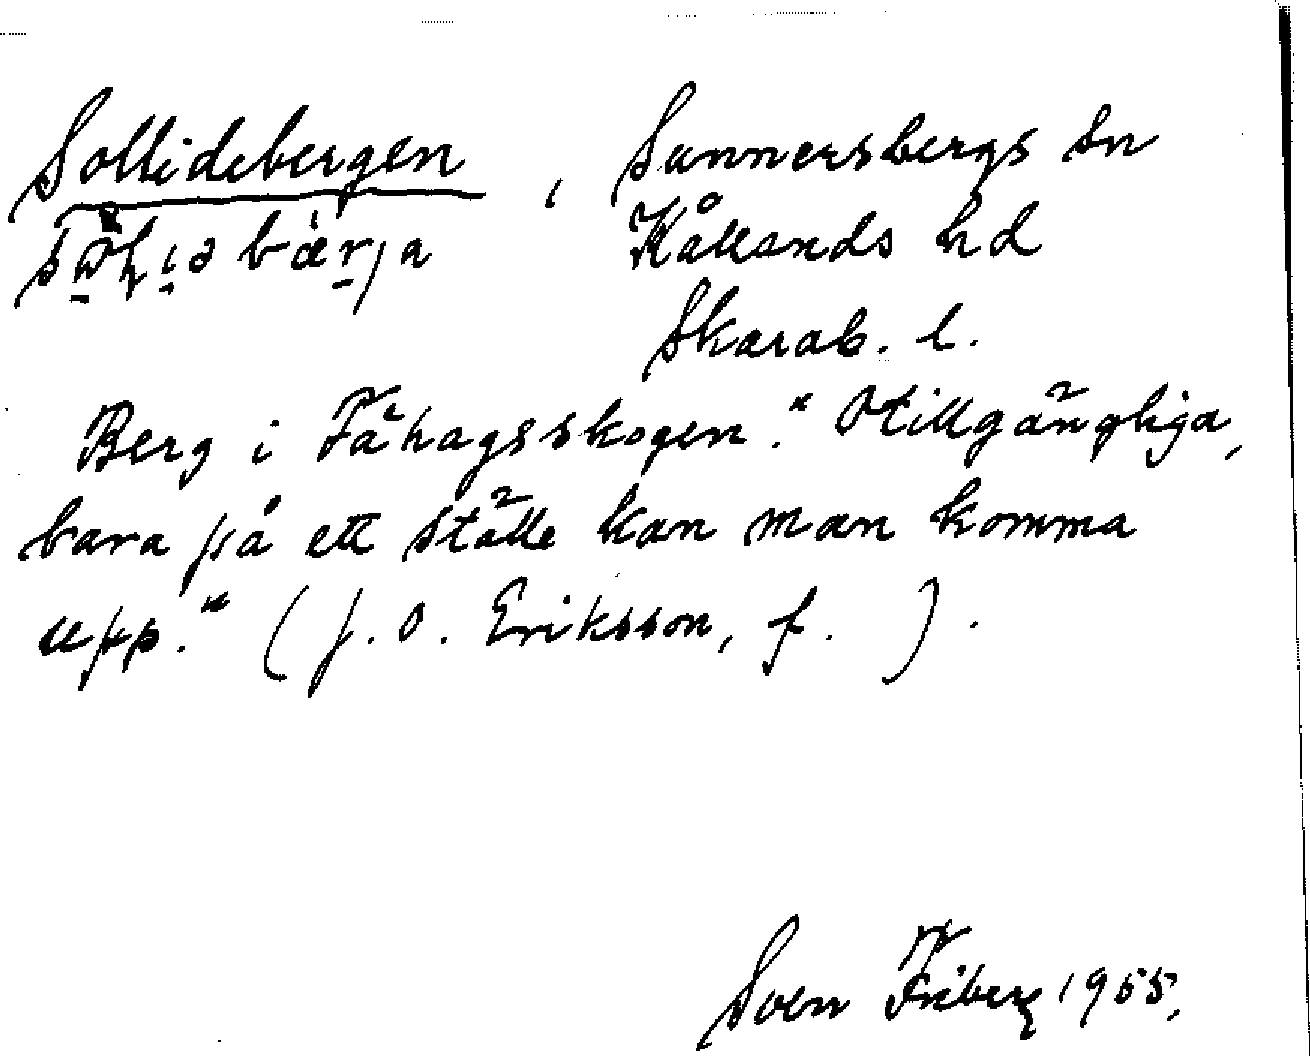 Sollidebergen, Sunnersbergs sn
Kållands hd
Skarab. l.
Berg i Fähagsskogen. "Otillgängliga,
bara på ett ställe kan man komma
upp." (J. O. Eriksson, f. ).
Sven Friberg 1955.